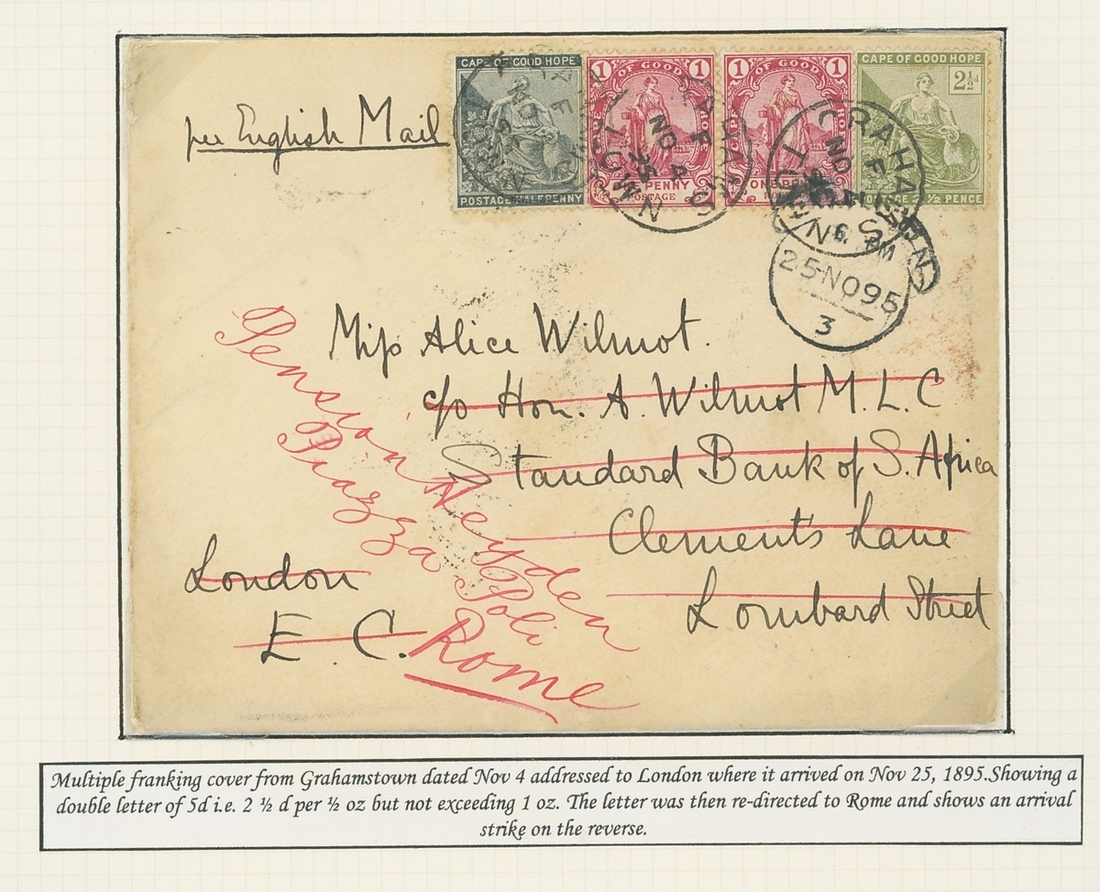 per English Mail
CAPE OF GOOD HOPE
POSTAGE HALFPENNY
1 OF GOOD 1
PENNY
POSTAGE
1 OF GOOD 1
ONE PENNY
CAPE OF GOOD HOPE
2½d
POSTAGE 2½ PENCE
GRAHAMSTOWN
NO 4
95
GRAHAMSTOWN
NO
6 PM
25 NO 95
3
Miss Alice Wilmot.
c/o Hon. A. Wilmot M.L.C
Standard Bank of S. Africa
Clement's Lane
Lombard Street
London
E. C.
Pension Heyden
Piazza Poli
Rome
Multiple franking cover from Grahamstown dated Nov 4 addressed to London where it arrived on Nov 25, 1895.Showing a
double letter of 5d i.e. 2 ½ d per ½ oz but not exceeding 1 oz. The letter was then re-directed to Rome and shows an arrival
strike on the reverse.